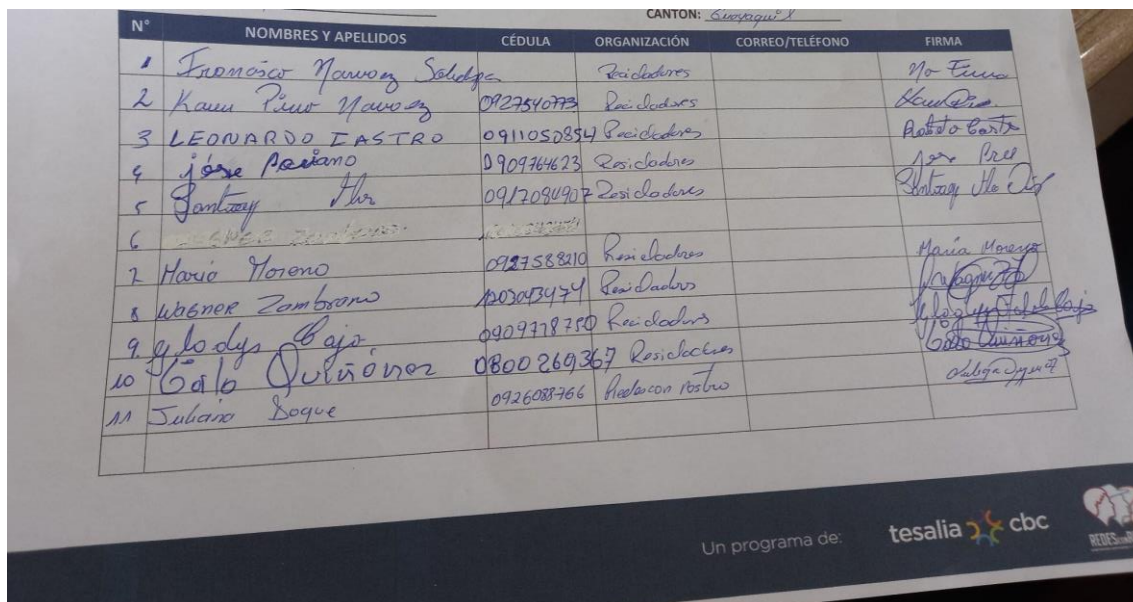 CANTON: Guayaquil
N° NOMBRES Y APELLIDOS CÉDULA ORGANIZACIÓN CORREO/TELÉFONO FIRMA
1 Francisco Narvaez Recicladores No Firma
2 Karen Pino Narvaez 0927540773 Recicladores
3 LEONARDO CASTRO 0911050854 Recicladores
4 jose 0909764623 Recicladores Jose
5 0917084907 Recicladores
6
7 Maria Moreno 0927588210 Recicladores Maria Moreno
8 WAGNER Zambrano 1203043474 Recicladores
9. gladys Cajo 0909778750 Recicladores
10 Galo Quiñónez 0800269367 Recicladores Galo Quiñonez
11 Juliana Doque 0926088766 Redes con rostro
Un programa de: tesalia cbc